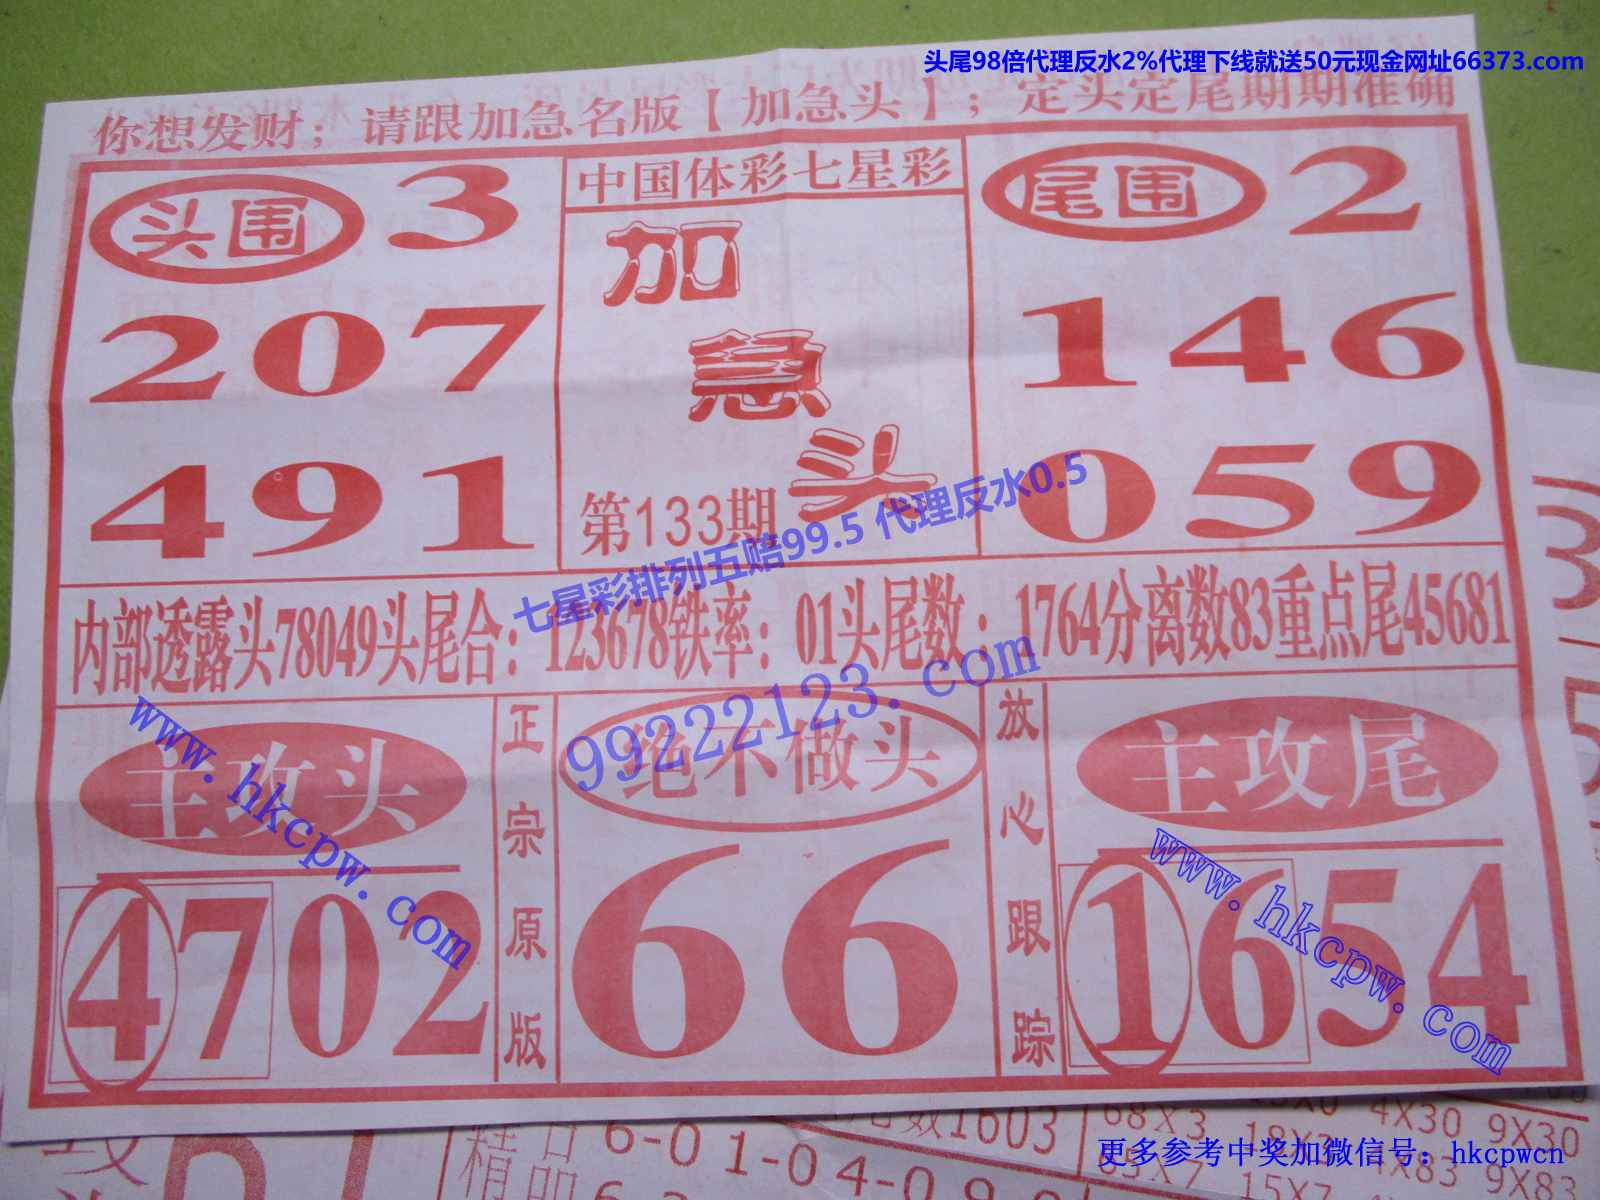 头尾98倍代理反水2%代理下线就送50元现金网址66373.com
你想发财；请跟加急名版【加急头】；定头定尾期期准确
头围 3
207
491
中国体彩七星彩
加急头
第133期
尾围 2
146
059
七星彩排列五赔99.5 代理反水0.5
内部透露头78049头尾合：123678铁率：01头尾数：1764分离数83重点尾45681
99222123.com
www.hkcpw.com
主攻头
4702
正宗原版
绝不做头
66
放心跟踪
主攻尾
1654
www.hkcpw.com
数1603
精品
6-01-04-09
68X3
4X30 9X30
65X7
18X2
4X83 9X83
15X7
更多参考中奖加微信号：hkcpwcn